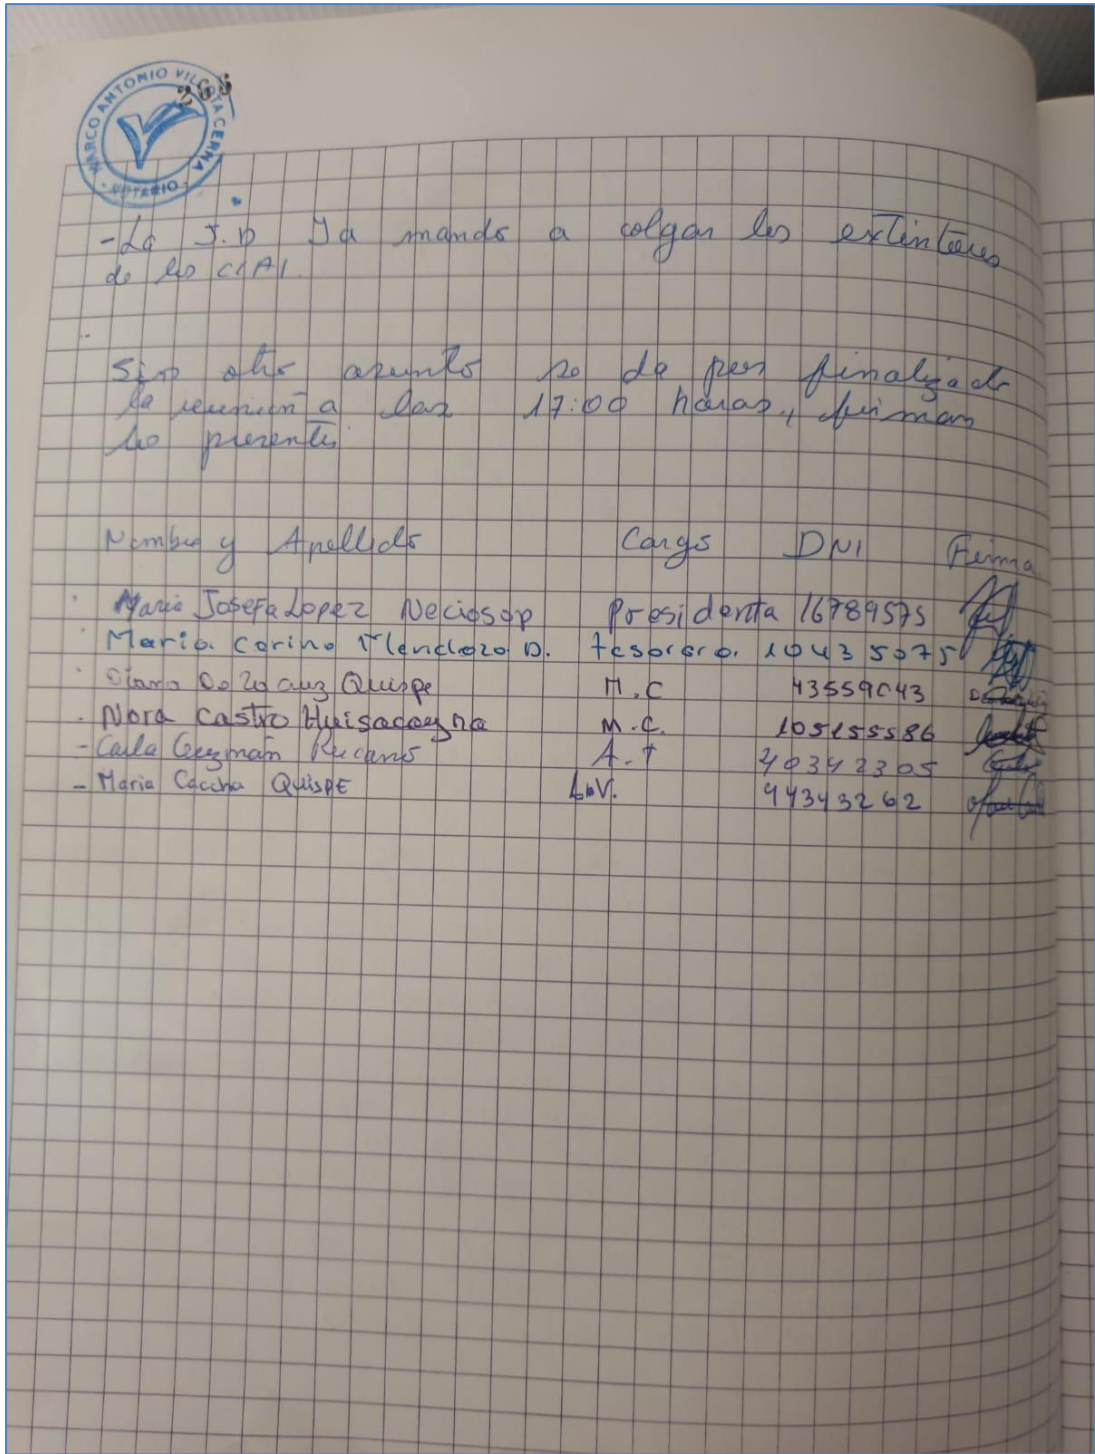 MARCO ANTONIO VILCOTA CERNA
NOTARIO
265
- La J.D Ya mando a colgar los extintores
de los CIAI.
Sin otro asunto se da por finalizado
la reunión a las 17:00 horas, firman
los presentes
Nombre y Apellido Cargo DNI Firma
Maria Josefa Lopez Neciosop Presidenta 16789575
Maria Corina Mendoza D. tesorera. 10435075
Quispe M.C 43559043
Nora Castro Huisacayna M.C. 105155586
- Carla Guzmán A.T 40342305
- Maria Ccacha QuispE 44343262